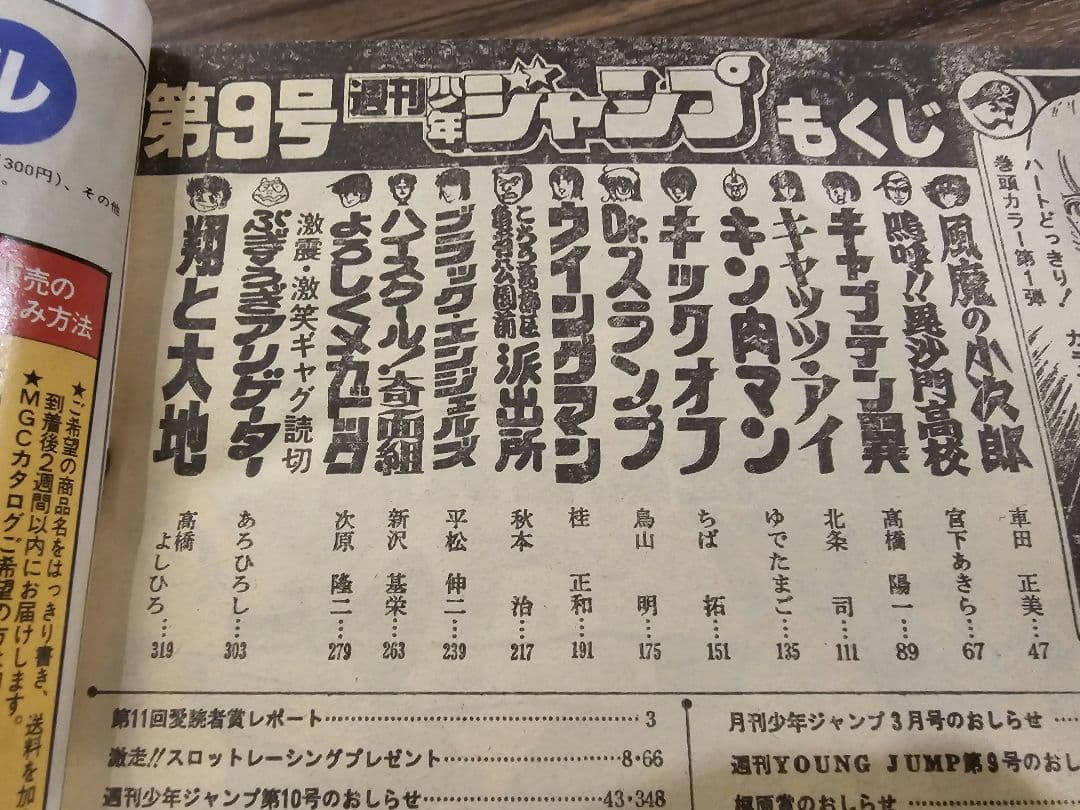 第9号 週刊少年ジャンプ もくじ
巻頭カラー第1弾
ハートどっきり!
風魔の小次郎 車田正美…47
嗚呼!!毘沙門高校 宮下あきら…67
キャプテン翼 高橋陽一…89
キャッツ・アイ 北条司…111
キン肉マン ゆでたまご…135
キックオフ ちば拓…151
Dr.スランプ 鳥山明…175
ウイングマン 桂正和…191
こちら葛飾区亀有公園前派出所 秋本治…217
ブラック・エンジェルズ 平松伸二…239
ハイスクール!奇面組 新沢基栄…263
よろしくメカドック 次原隆二…279
激震・激笑ギャグ読切
ぶぎうぎアリゲーター あろひろし…303
翔と大地 高橋よしひろ…319
第11回愛読者賞レポート……3
激走!!スロットレーシングプレゼント……8・66
週刊少年ジャンプ第10号のおしらせ……43・348
月刊少年ジャンプ3月号のおしらせ……
週刊YOUNG JUMP第9号のおしら
ル
300円)、その他
売の
み方法
★ご希望の商品名をはっきり書き、送料を加
到着後2週間以内にお届けします。
★MGCカタログご希望の方